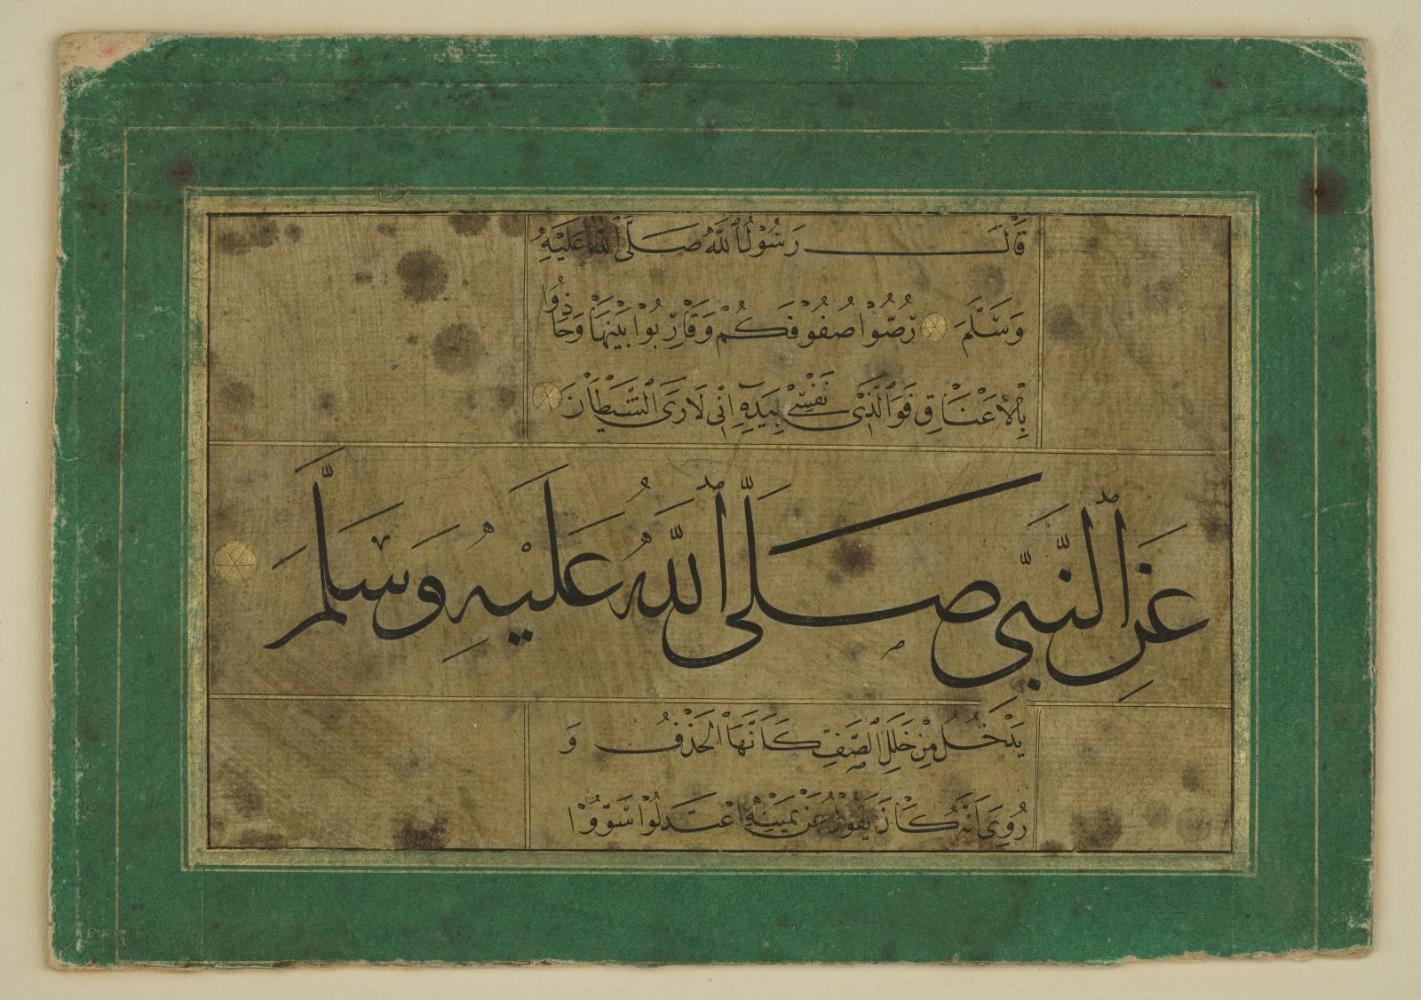 قَالَ رَسُوْلُ اللّٰهِ صَلَّى اللّٰهُ عَلَيْهِ
وَسَلَّمَ رُصُّوْا صُفُوْفَكُمْ وَقَارِبُوْا بَيْنَهَا وَحَاذُوْا
بِالْاَعْنَاقِ فَوَالَّذِى نَفْسِىْ بِيَدِهِ اِنِّى لَاَرَى الشَّيْطَانَ
عَنِ النَّبِىِّ صَلَّى اللّٰهُ عَلَيْهِ وَسَلَّمَ
يَدْخُلُ مِنْ خَلَلِ الصَّفِّ كَاَنَّهَا الْحَذَفُ وَ
رُوِىَ اَنَّهُ كَانَ يَقُوْلُ عَنْ يَمِيْنِهِ اعْتَدِلُوْا سَوُّوْا